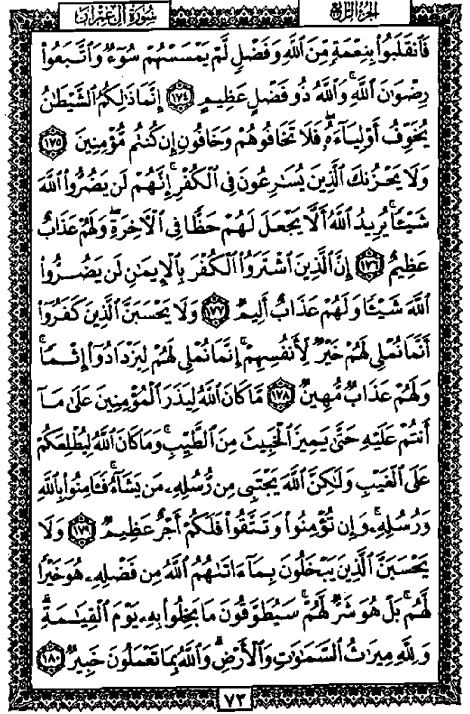 سُورَةُ آلِ عِمْرَانَ
الجُزْءُ الرَّابِعُ
فَٱنقَلَبُوا۟ بِنِعْمَةٍ مِّنَ ٱللَّهِ وَفَضْلٍ لَّمْ يَمْسَسْهُمْ سُوٓءٌ وَٱتَّبَعُوا۟
رِضْوَٰنَ ٱللَّهِ ۗ وَٱللَّهُ ذُو فَضْلٍ عَظِيمٍ ١٧٤ إِنَّمَا ذَٰلِكُمُ ٱلشَّيْطَٰنُ
يُخَوِّفُ أَوْلِيَآءَهُۥ فَلَا تَخَافُوهُمْ وَخَافُونِ إِن كُنتُم مُّؤْمِنِينَ ١٧٥
وَلَا يَحْزُنكَ ٱلَّذِينَ يُسَٰرِعُونَ فِى ٱلْكُفْرِ ۚ إِنَّهُمْ لَن يَضُرُّوا۟ ٱللَّهَ
شَيْـًٔا ۗ يُرِيدُ ٱللَّهُ أَلَّا يَجْعَلَ لَهُمْ حَظًّا فِى ٱلْءَاخِرَةِ ۖ وَلَهُمْ عَذَابٌ
عَظِيمٌ ١٧٦ إِنَّ ٱلَّذِينَ ٱشْتَرَوُا۟ ٱلْكُفْرَ بِٱلْإِيمَٰنِ لَن يَضُرُّوا۟
ٱللَّهَ شَيْـًٔا وَلَهُمْ عَذَابٌ أَلِيمٌ ١٧٧ وَلَا يَحْسَبَنَّ ٱلَّذِينَ كَفَرُوٓا۟
أَنَّمَا نُمْلِى لَهُمْ خَيْرٌ لِّأَنفُسِهِمْ ۚ إِنَّمَا نُمْلِى لَهُمْ لِيَزْدَادُوٓا۟ إِثْمًا ۚ
وَلَهُمْ عَذَابٌ مُّهِينٌ ١٧٨ مَّا كَانَ ٱللَّهُ لِيَذَرَ ٱلْمُؤْمِنِينَ عَلَىٰ مَآ
أَنتُمْ عَلَيْهِ حَتَّىٰ يَمِيزَ ٱلْخَبِيثَ مِنَ ٱلطَّيِّبِ ۗ وَمَا كَانَ ٱللَّهُ لِيُطْلِعَكُمْ
عَلَى ٱلْغَيْبِ وَلَٰكِنَّ ٱللَّهَ يَجْتَبِى مِن رُّسُلِهِۦ مَن يَشَآءُ ۖ فَـَٔامِنُوا۟ بِٱللَّهِ
وَرُسُلِهِۦ ۚ وَإِن تُؤْمِنُوا۟ وَتَتَّقُوا۟ فَلَكُمْ أَجْرٌ عَظِيمٌ ١٧٩ وَلَا
يَحْسَبَنَّ ٱلَّذِينَ يَبْخَلُونَ بِمَآ ءَاتَىٰهُمُ ٱللَّهُ مِن فَضْلِهِۦ هُوَ خَيْرًا
لَّهُم ۖ بَلْ هُوَ شَرٌّ لَّهُمْ ۖ سَيُطَوَّقُونَ مَا بَخِلُوا۟ بِهِۦ يَوْمَ ٱلْقِيَٰمَةِ ۗ
وَلِلَّهِ مِيرَٰثُ ٱلسَّمَٰوَٰتِ وَٱلْأَرْضِ ۗ وَٱللَّهُ بِمَا تَعْمَلُونَ خَبِيرٌ ١٨٠
٧٣